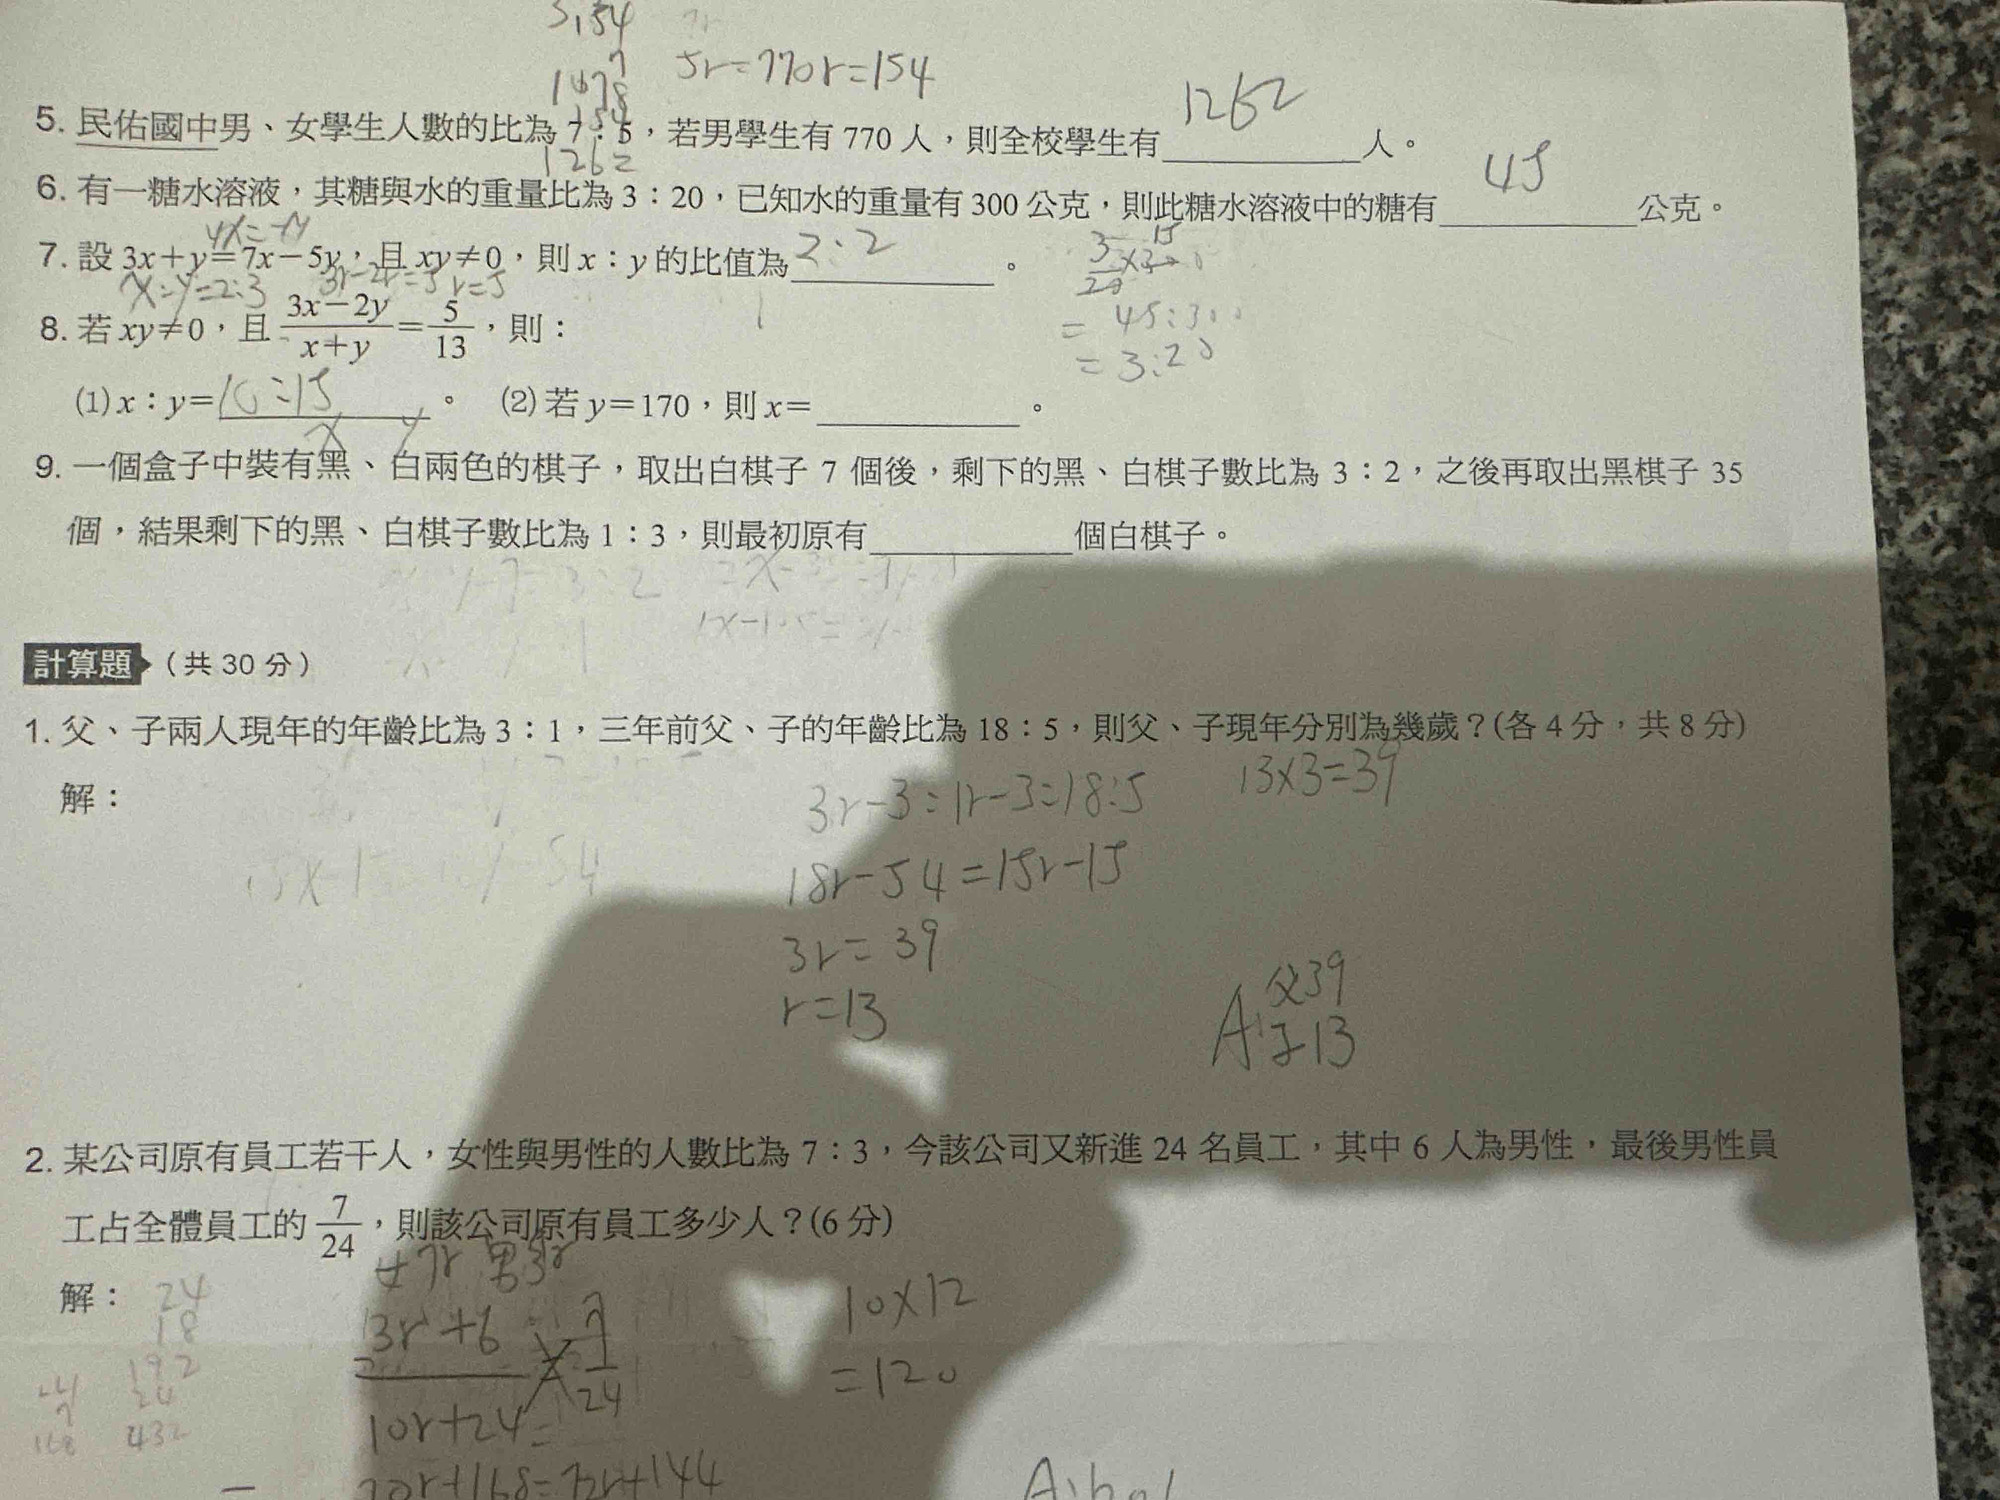 5,154
7
1078
154
1262
5r=770r=154
5. 民佑國中男、女學生人數的比為 7：5，若男學生有 770 人，則全校學生有 1262 人。
6. 有一糖水溶液，其糖與水的重量比為 3：20，已知水的重量有 300 公克，則此糖水溶液中的糖有 45 公克。
7. 設 3x＋y＝7x－5y，且 xy≠0，則 x：y 的比值為 2:2 。
x:y=2:3 3r-2r=5 r=5
8. 若 xy≠0，且 (3x－2y)/(x＋y)＝5/13，則：
= 45:300
= 3:20
(1) x：y＝10:15 。 (2) 若 y＝170，則 x＝ 。
x y
9. 一個盒子中裝有黑、白兩色的棋子，取出白棋子 7 個後，剩下的黑、白棋子數比為 3：2，之後再取出黑棋子 35
個，結果剩下的黑、白棋子數比為 1：3，則最初原有 個白棋子。
計算題（共 30 分）
1. 父、子兩人現年的年齡比為 3：1，三年前父、子的年齡比為 18：5，則父、子現年分別為幾歲？(各 4 分，共 8 分)
解：
3r-3:1r-3=18:5 13x3=39
18r-54=15r-15
3r=39
r=13
A:父39
子13
2. 某公司原有員工若干人，女性與男性的人數比為 7：3，今該公司又新進 24 名員工，其中 6 人為男性，最後男性員
工占全體員工的 7/24，則該公司原有員工多少人？(6 分)
女7r 男3r
解：
24
18
192
24
432
168
3r+6 7
10r+24 = 24
10x12
=120
70r+168=72r+144